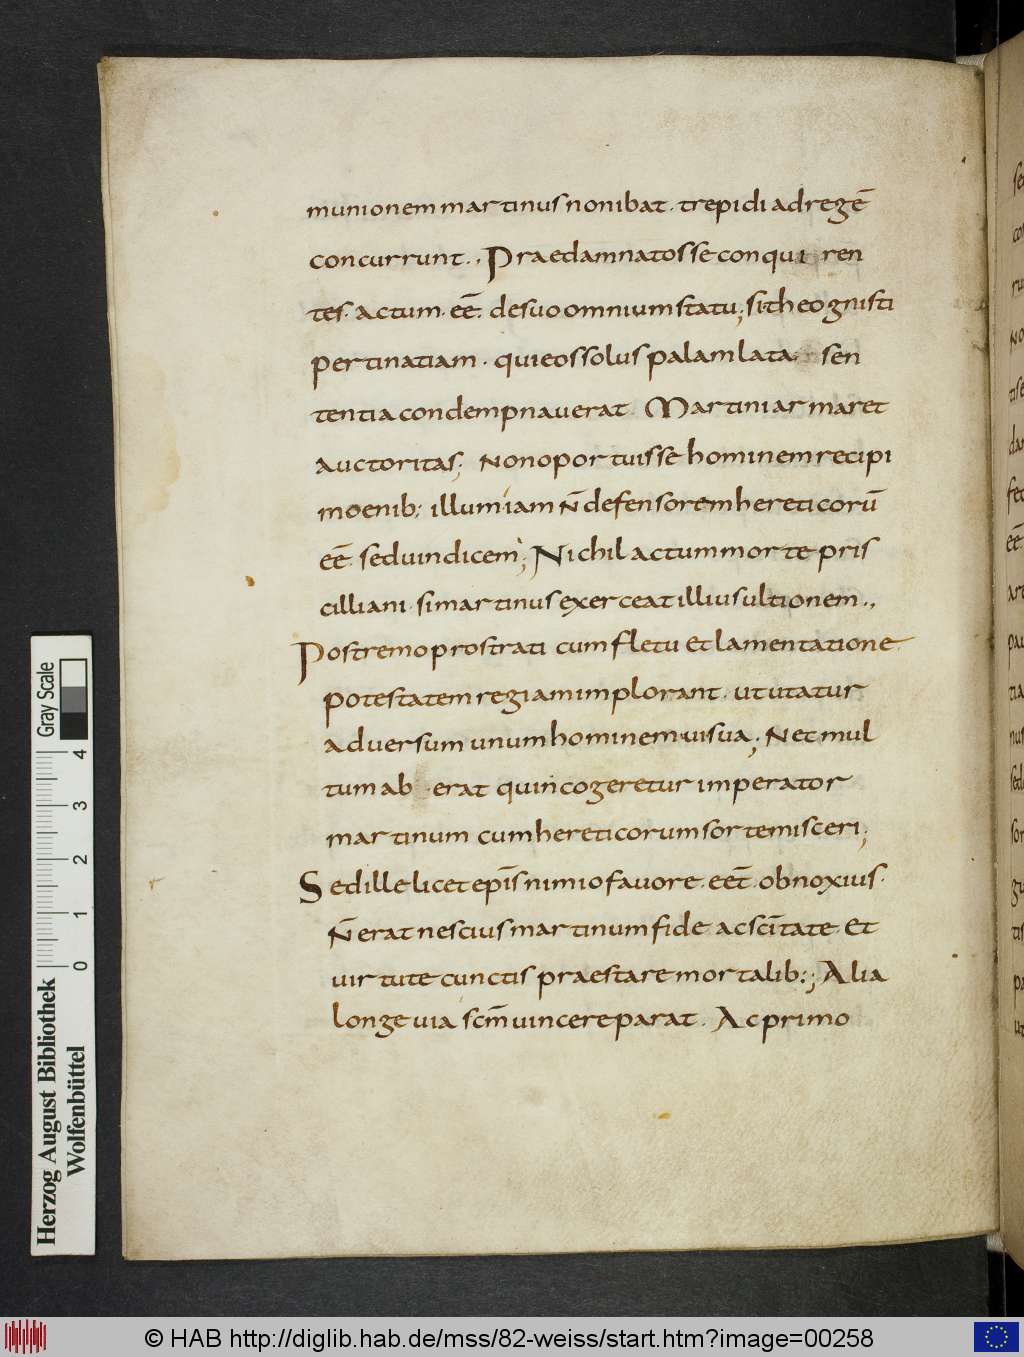 munionem martinus non ibat · trepidi ad regē
concurrunt ·, Praedamnatos se conqui ren
tes · actum · eē · de suo omnium statu ; si theognisti
pertinatiam · qui eos solus palam lata · sen
tentia condempnaverat Martini armaret
auctoritas ; Non oportuisse hominem recipi
moenib: illum iam n̄ defensorem hereticorū
eē · sed vindicem ; Nichil actum morte pris
cilliani · si martinus exerceat illius ultionem ·,
Postremo prostrati cum fletu et lamentatione ·
potestatem regiam implorant · ut utatur
adversum unum hominem vi sua ; Nec mul
tum ab erat quin cogeretur imperator
martinum cum hereticorum sorte misceri ;
Sed ille licet ep̄is nimio favore · eēt · obnoxius ·
N̄ erat nescius martinum fide ac sc̄itate et
virtute cunctis praestare mortalib: ; Alia
longe via scm̄ vincere parat · Ac primo
Herzog August Bibliothek
Wolfenbüttel
Gray Scale
0 1 2 3 4
© HAB http://diglib.hab.de/mss/82-weiss/start.htm?image=00258